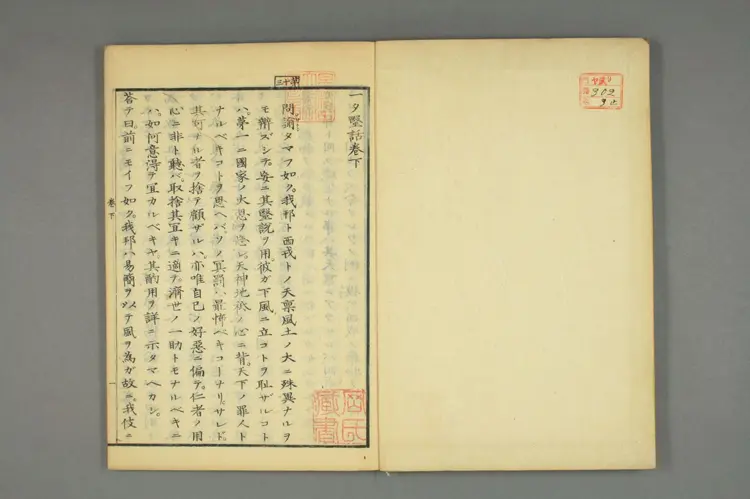 一夕醫話卷下
問諭タマフ如ク。我邦ト西戎トノ天稟風土ノ大ニ殊異ナルヲ
モ辨ズシテ。妄ニ其醫説ヲ用。彼ガ下風ニ立コトヲ恥ザルコト
ハ、第一ニ國家ノ大忌ヲ
天神地祇ノ心ニ背。天下ノ罪人ト
ナルベキコトヲ思ヘバ。ソノ冥罰ハ最惶ベキコトナリ。サレド。
其可ナル者ヲ捨テ顧ザルハ、亦唯自己ノ好惡ニ偏テ。仁者ノ用
心ニ非ト聽バ。取捨其宜キニ適テ。濟世ノ一助トモナルベキニ
ハ。如何意得テ宜カルベキヤ。其酌用ヲ詳ニ示タマヘカシ。
答テ曰前ニモイフ如ク。我邦ハ易簡ヲ
テ風ヲ為ガ故ニ。我伎ニ
卷下
一
第十三
岡氏
藏書
302